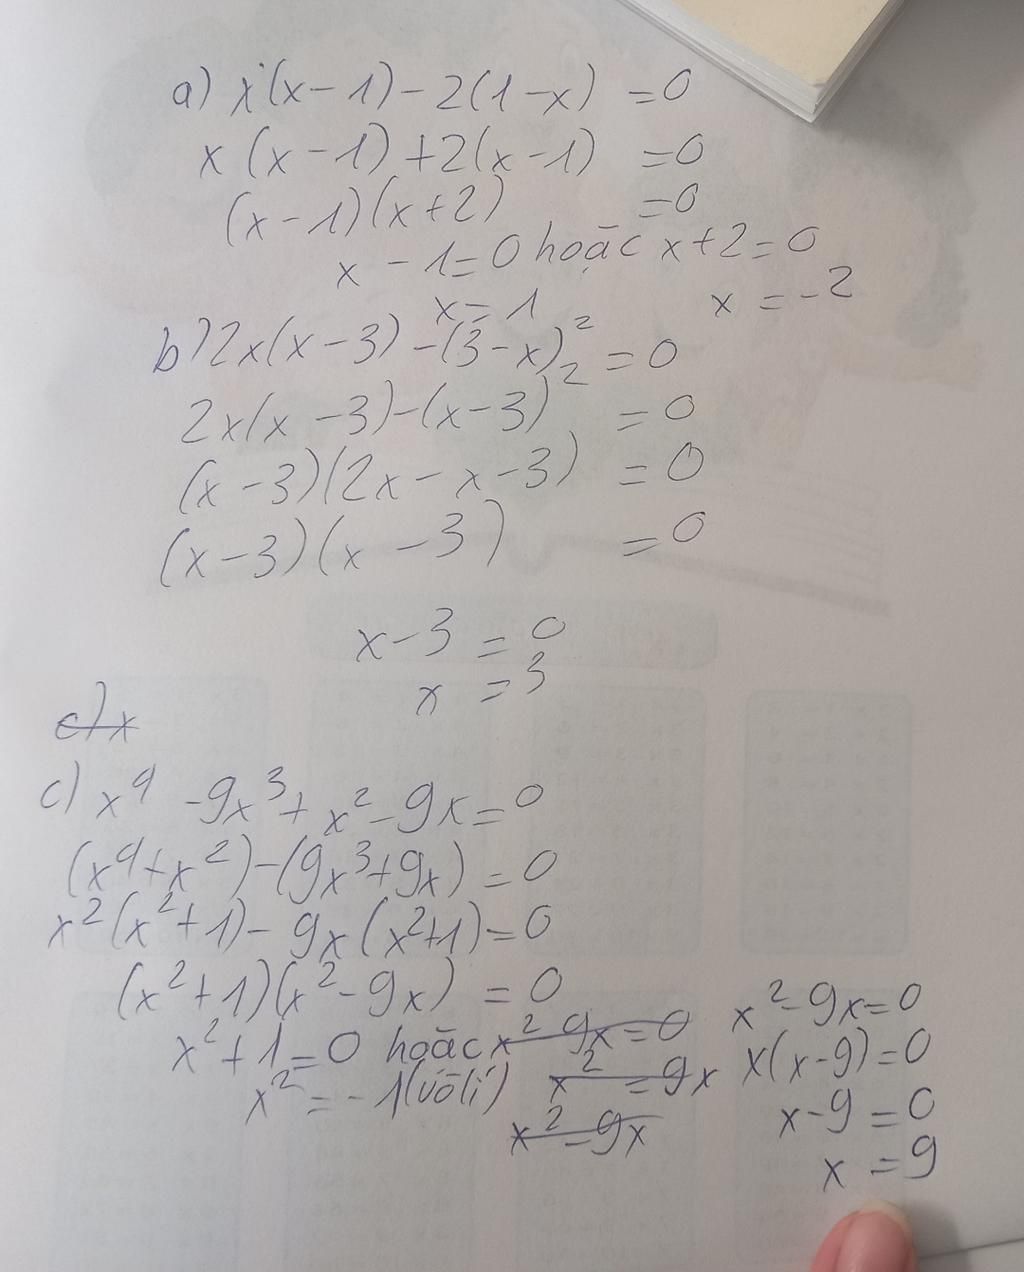 a) x(x-1)-2(1-x) =0
x(x-1)+2(x-1) =0
(x-1)(x+2) =0
x-1=0 hoặc x+2=0
x=1 x=-2
b) 2x(x-3)-(3-x)²=0
2x(x-3)-(x-3)² =0
(x-3)(2x-x-3) =0
(x-3)(x-3) =0
x-3=0
x =3
c) x
c) x⁴-9x³+x²-9x=0
(x⁴+x²)-(9x³+9x)=0
x²(x²+1)-9x(x²+1)=0
(x²+1)(x²-9x) =0
x²+1=0 hoặc x²-9x=0
x²=-1(vô lí) x²=9x
x²-9x
x²-9x=0
x(x-9)=0
x-9=0
x=9